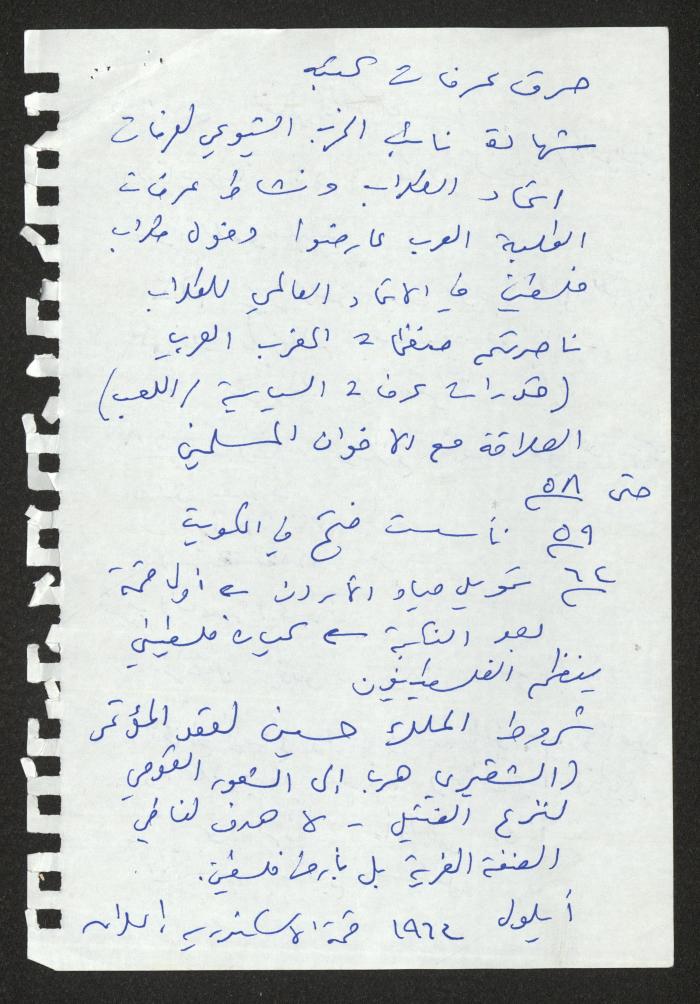 حرق عرفات كتبه
شهادة نائب الحزب الشيوعي لعرفات
اتحاد الطلاب ونشاط عرفات
الطلبة العرب عارضوا دخول طلاب
فلسطين في الاتحاد العالمي للطلاب
ناصرتهم منظمات المغرب العربي
(قدرات عرفات السياسية / اللعب)
العلاقة مع الاخوان المسلمين
حتى ٥٨
٥٩ تأسست فتح في الكويت
تحويل مياه الأردن ← أول قمة
بعد النكبة ← كيان فلسطيني
ينظم الفلسطينيون
شروط الملك حسين لعقد المؤتمر
(الشقيري هرب إلى الشعور القومي
لنزع الفتيل - لا هدف لنا في
الضفة الغربية بل بأرض فلسطين.
أيلول ١٩٦٤ قمة الاسكندرية إعلان